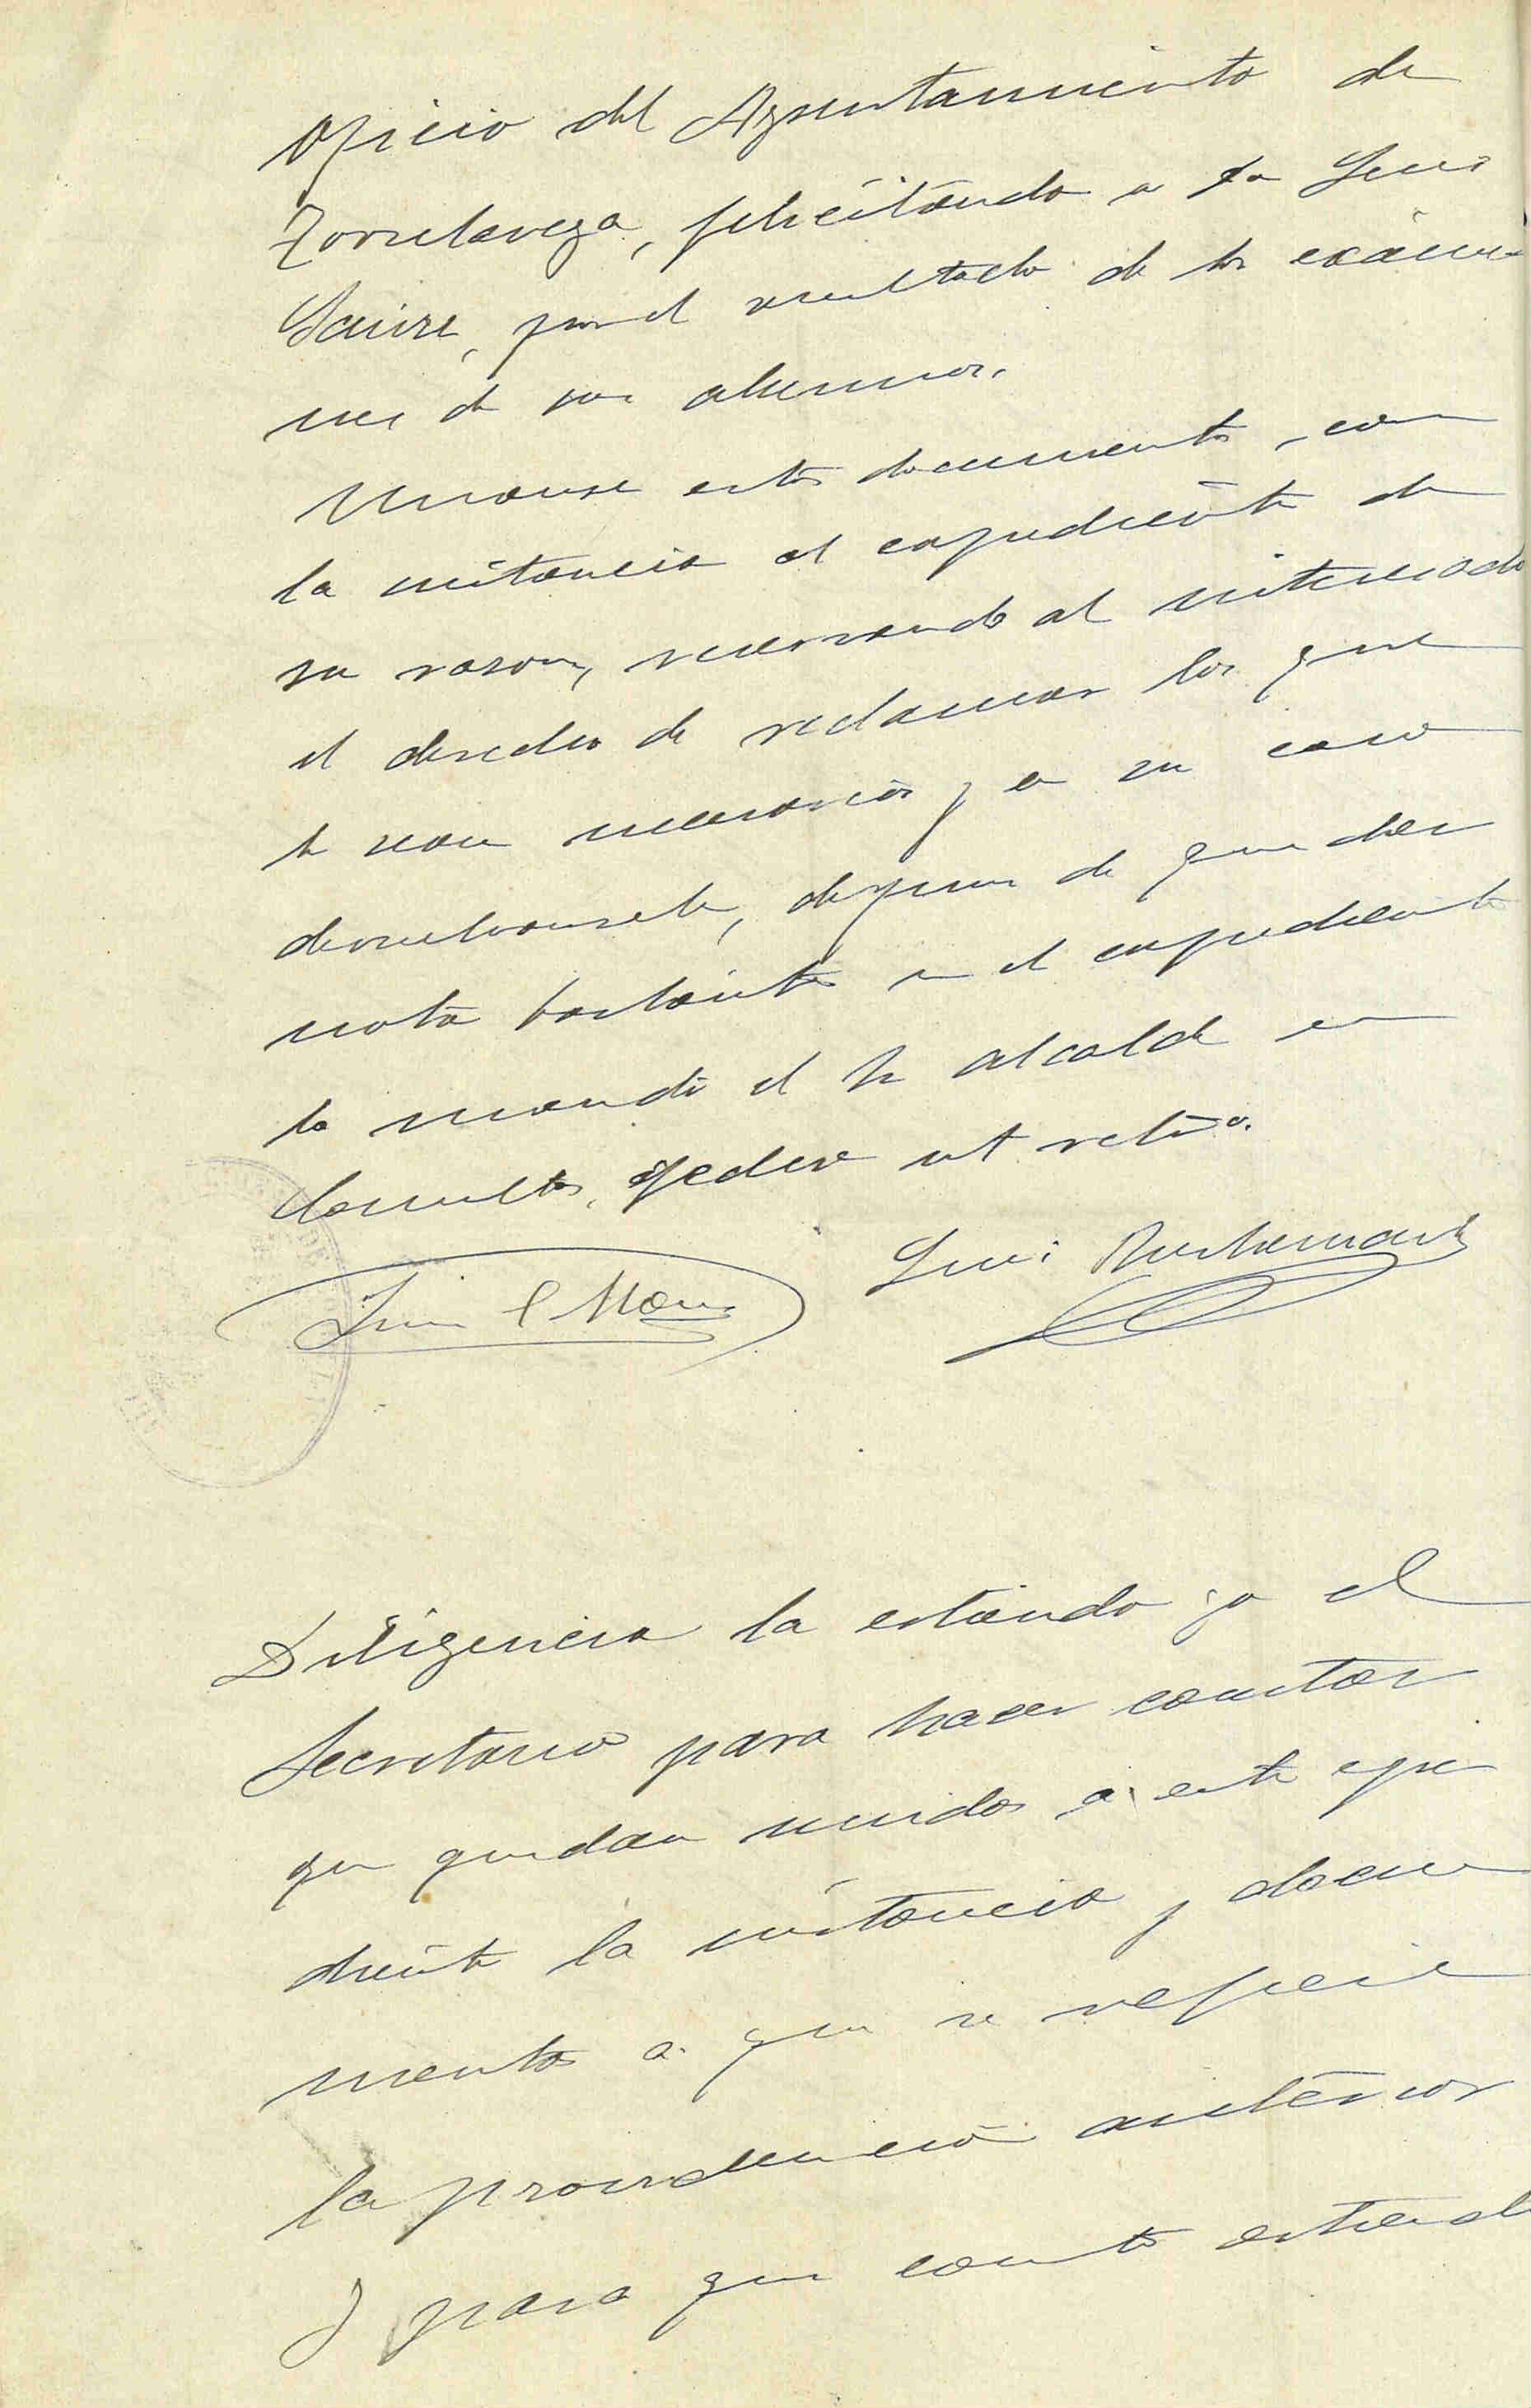 Oficio del Ayuntamiento de
Torrelavega, felicitando a Dn Luis
Sainz, por el resultado de los exáme-
nes de sus alumnos.
Unanse estos documentos, con
la instancia al expediente de
su razon, reservando al interesado
el derecho de reclamar los que
le sean necesarios y en su caso
devuelvansele, despues de quedar
nota bastante en el expediente
lo mandó el Sr Alcalde en
fecha ut retro.
Luis
Diligencia la extiendo yo el
Secretario para hacer constar
que quedan unidos a este expe
diente la instancia y docu
mentos a que se refiere
la providencia anterior
Y para que conste extiendo